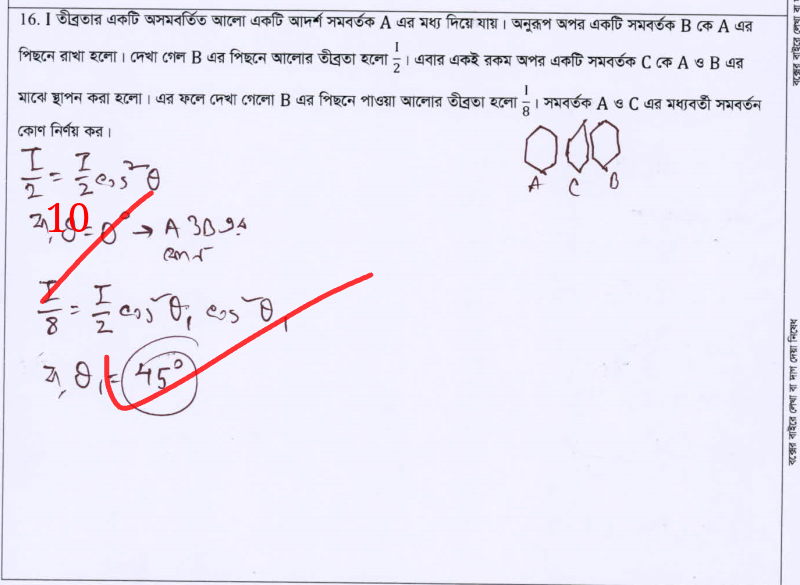 16. I তীব্রতার একটি অসমবর্তিত আলো একটি আদর্শ সমবর্তক A এর মধ্য দিয়ে যায়। অনুরূপ অপর একটি সমবর্তক B কে A এর
পিছনে রাখা হলো। দেখা গেল B এর পিছনে আলোর তীব্রতা হলো I/2। এবার একই রকম অপর একটি সমবর্তক C কে A ও B এর
মাঝে স্থাপন করা হলো। এর ফলে দেখা গেলো B এর পিছনে পাওয়া আলোর তীব্রতা হলো I/8। সমবর্তক A ও C এর মধ্যবর্তী সমবর্তন
কোণ নির্ণয় কর।
A C B
I/2 = I/2 cos²θ
বা, θ = 0° → A ও B এর
10
I/8 = I/2 cos²θ₁ cos²θ₁
বা, θ₁ = 45°
বক্সের বাইরে লেখা বা দাগ দেয়া নিষেধ
বক্সের বাইরে লেখা বা দ